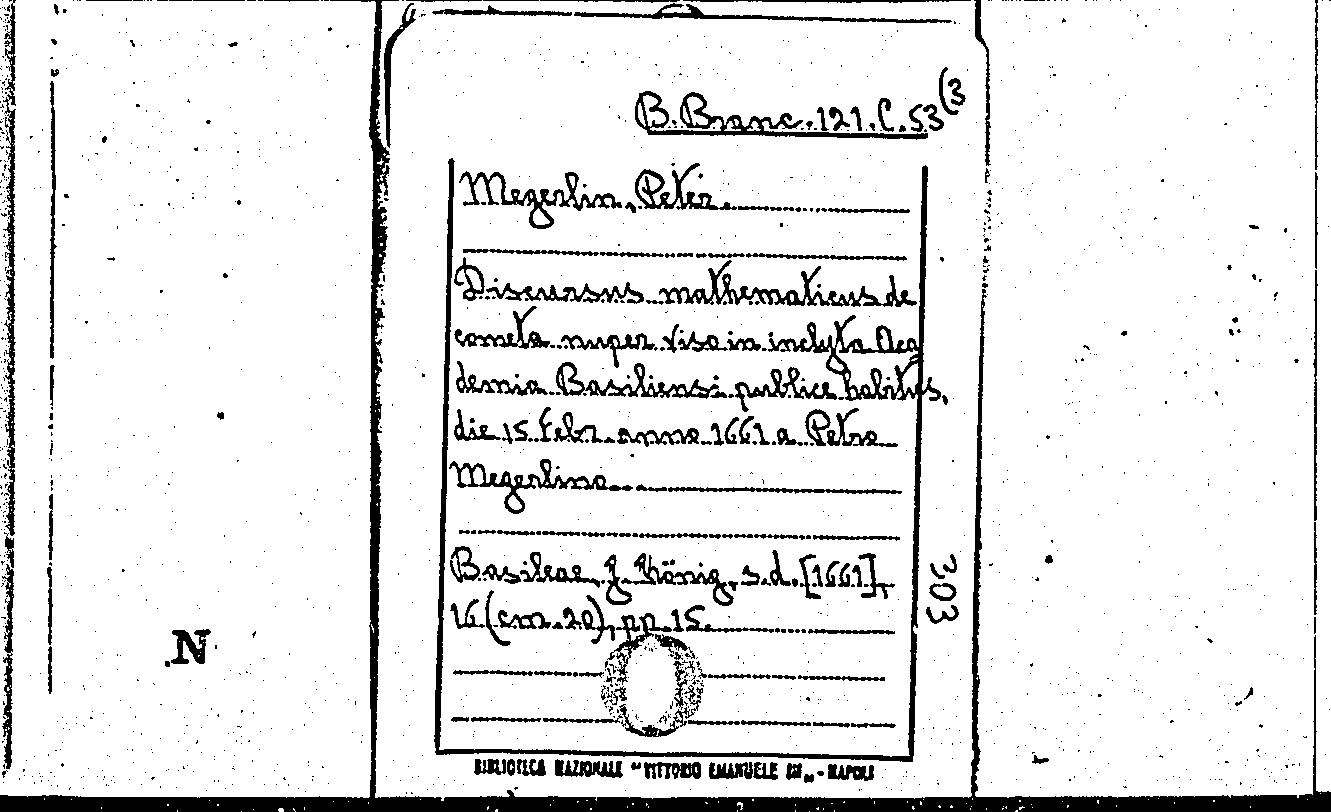 B. Branc. 121. C. 53(3
Megerlin, Peter.
Discursus mathematicus de
cometa nuper viso in inclyta Aca
demia Basiliensi publice habitus,
die 15 febr. anno 1661 a Petro
Megerlino...
Basileae, J. König, s.d. [1661],
16 (cm. 20), pp. 15.
303
N
BIBLIOTECA NAZIONALE "VITTORIO EMANUELE III" - NAPOLI